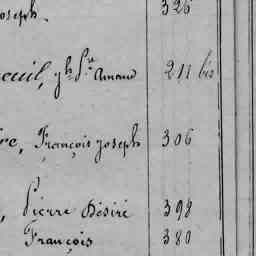 oseph. 326
euil, Armand 211 bis
re, François Joseph 306
, Pierre Désiré 398
François 380